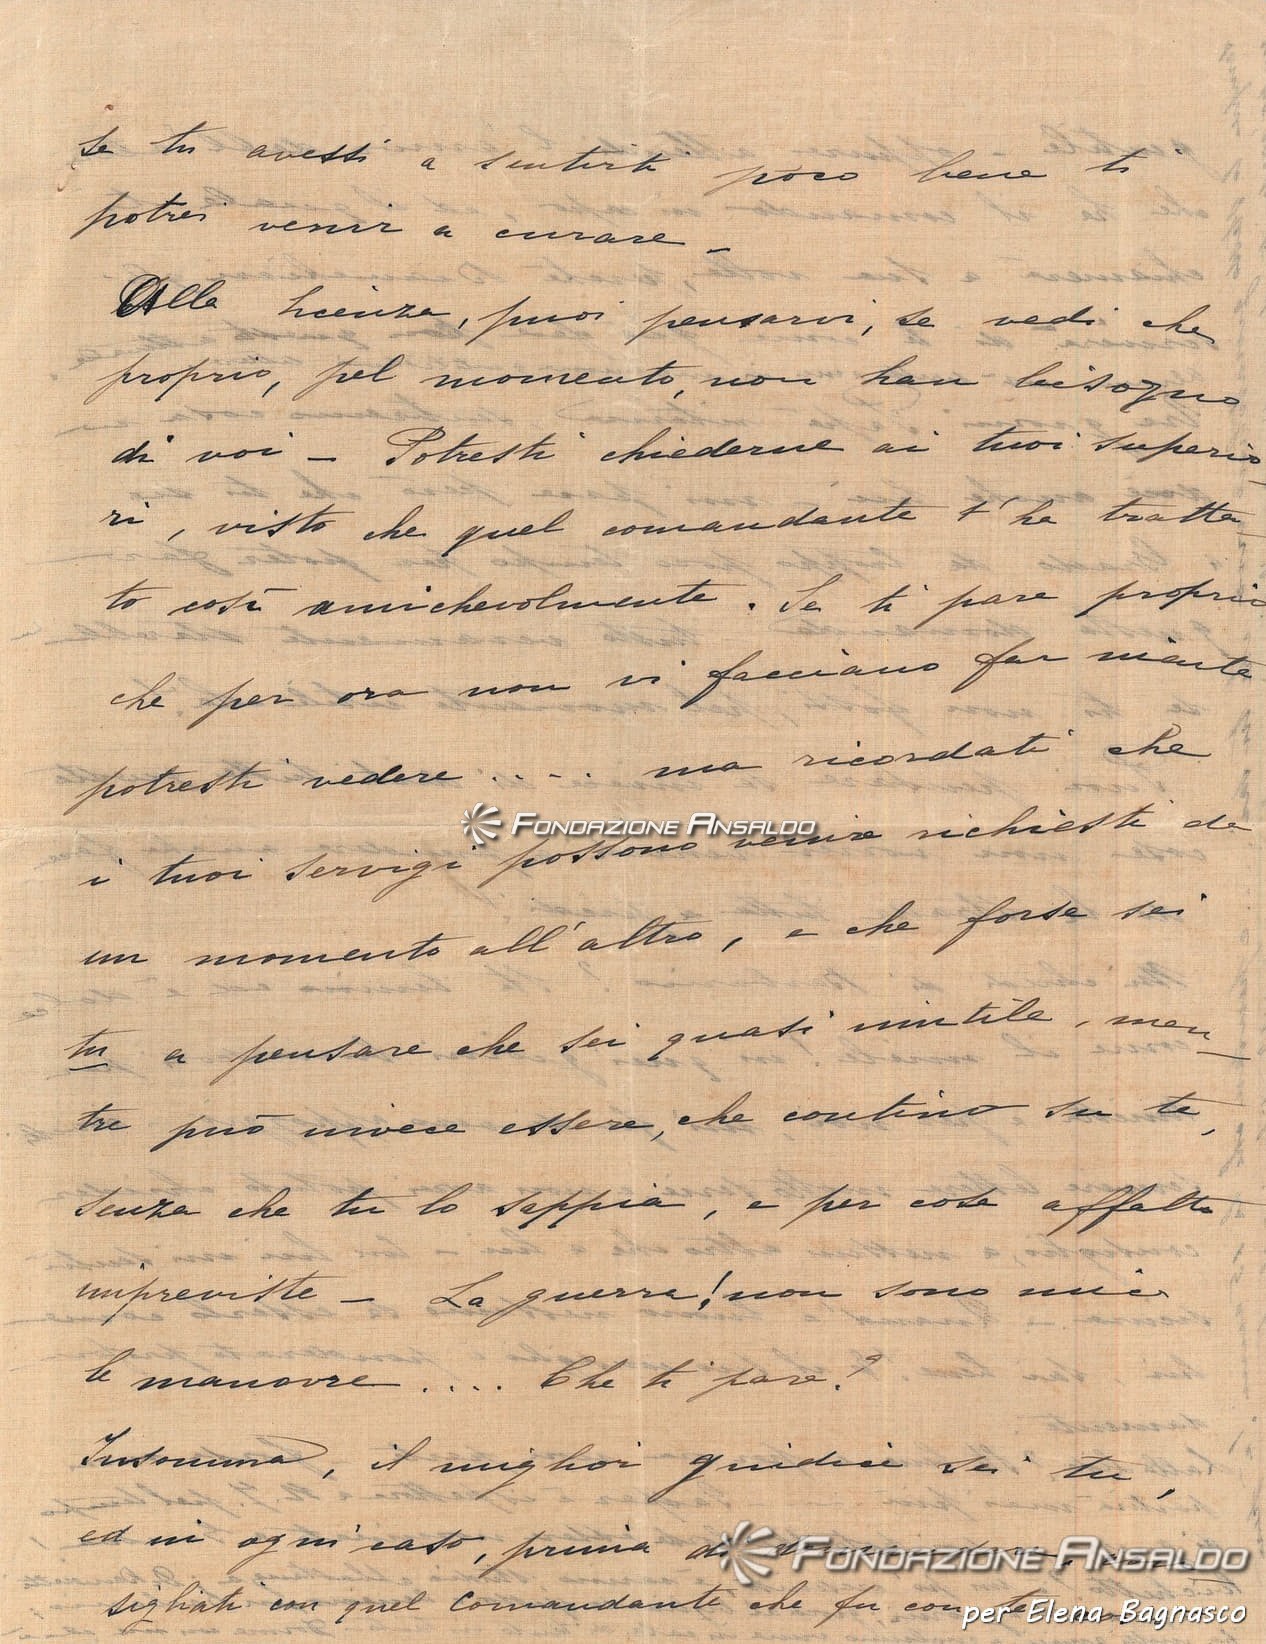 se tu avessi a sentirti poco bene ti
potrei venir a curare –
Alla licenza, puoi pensarvi, se vedi che
proprio, pel momento, non han bisogno
di voi – Potresti chiederne ai tuoi superio-
ri, visto che quel comandante t'ha tratta-
to così amichevolmente. Se ti pare proprio
che per ora non vi facciano far niente
potresti vedere .... ma ricordati che
FONDAZIONE ANSALDO
i tuoi servigi possono venire richiesti da
un momento all'altro, e che forse sei
tu a pensare che sei quasi inutile, men-
tre può invece essere, che contino su te,
senza che tu lo sappia, e per cose affatto
impreviste – La guerra! non sono mica
le manovre .... Che ti pare?
Insomma, il miglior giudice sei tu,
ed in ogni caso, prima di
FONDAZIONE ANSALDO
sigliati con quel Comandante che fu con te
per Elena Bagnasco